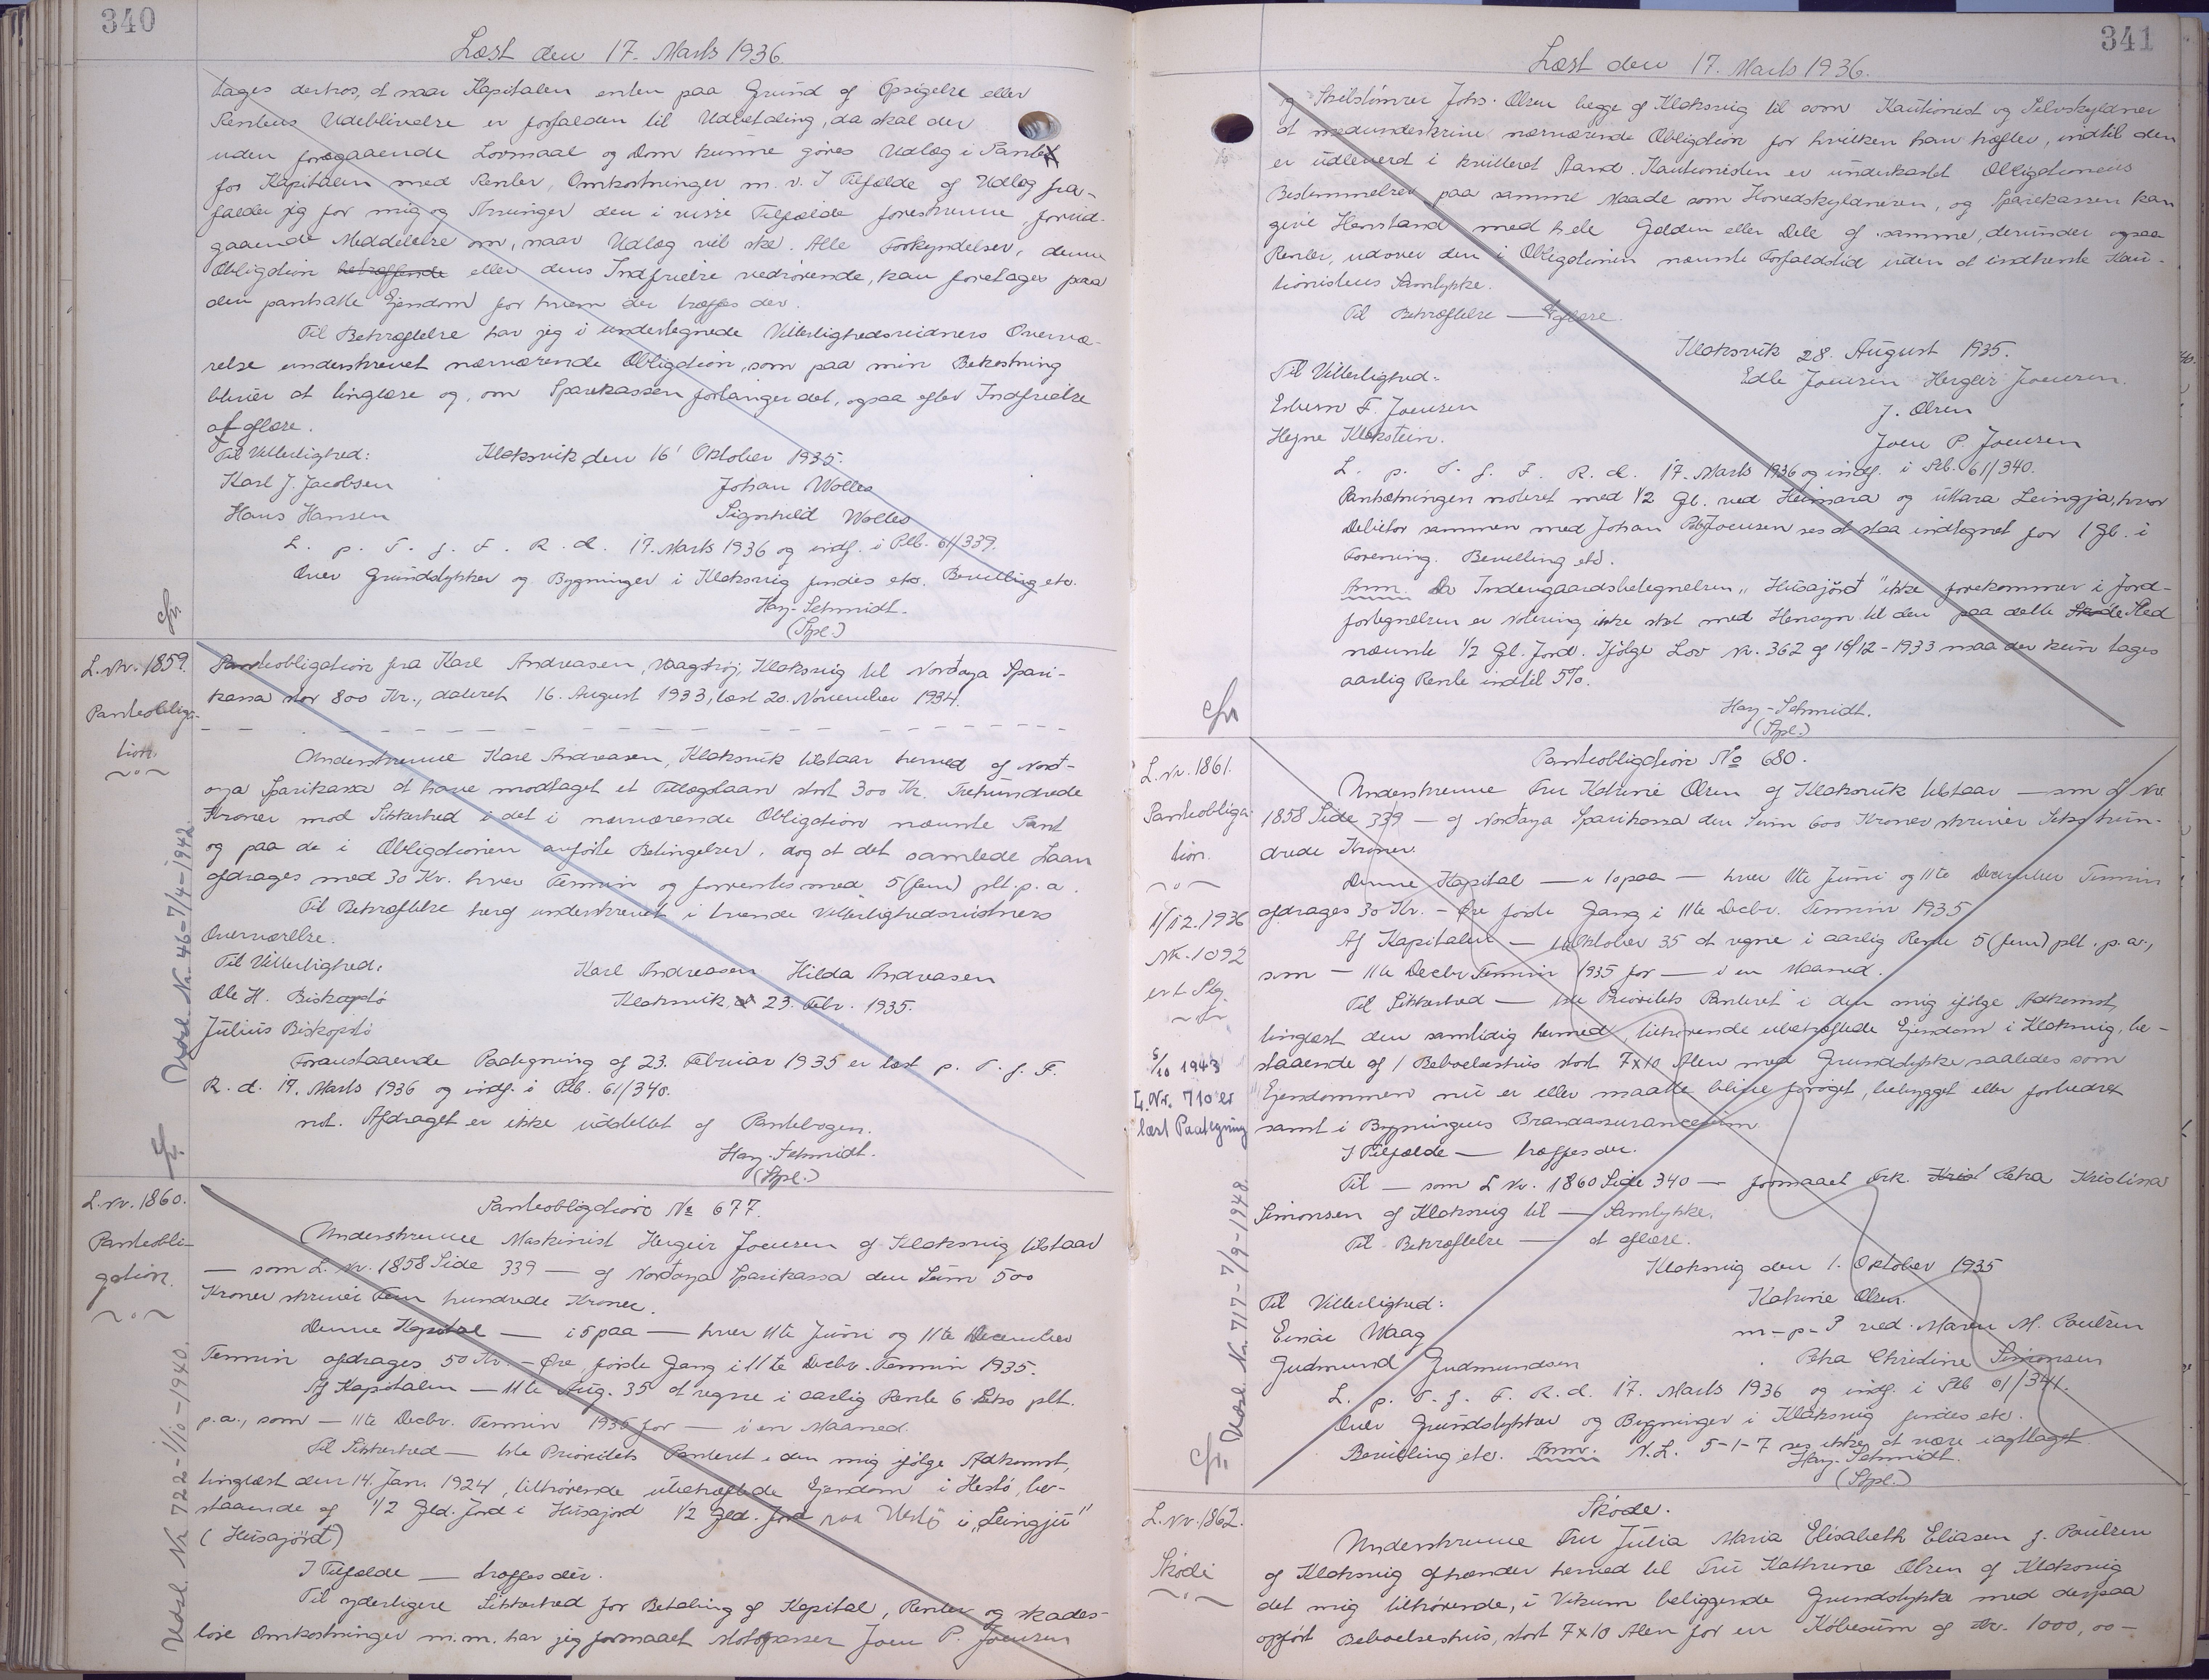 340
Læst den 17. Marts 1936.
tages derhos, at naar Kapitalen enten paa Grund af Opsigelse eller
Rentens Udeblivelse er forfalden til Udbetaling, da skal der
uden foregaaende Lovmaal og Dom kunne göres Udlæg i Pantet
for Kapitalen med Renter, Omkostninger m.v. I Tilfælde af Udlæg fra-
falder jeg for mig og Arvinger den i visse Tilfælde foreskrevne, forud-
gaaende Meddelelse om, naar Udlæg vil ske. Alle Forkyndelser, denne
Obligation betræffende eller dens Indfrielse vedrörende, kan foretages paa
den pantsatte Ejendom for hvem der træffes der.
Til Bekræftelse har jeg i undertegnede Vitterlighedsvidners Overvæ-
relse underskrevet nærværende Obligation, som paa min Bekostning
bliver at tinglæse og, om Sparekassen forlanger det, ogsaa efter Indfrielse
at aflæse.
Til Vitterlighed: Klaksvik, den 16' Oktober 1935.
Karl J. Jacobsen Johan Wolles
Hans Hansen Signhild Wolles
L. p. T. f. F. R. d. 17. Marts 1936 og indf. i Ptb. 61/339.
Over Grundstykker og Bygninger i Klaksvig findes etc. Bevilling etc.
Hay-Schmidt.
(Stpl.)
cfr.
L. Nr. 1859.
Panteobliga-
tion.
Udsl. Nr. 46-7/4-1942.
Panteobligation fra Karl Andreasen, Vaagstrøj, Klaksvig til Nordoya Spari-
kassa stor 800 Kr., dateret 16. August 1933, læst 20. November 1934.
Underskrevne Karl Andreasen, Klaksvik tilstaar herved af Nord-
oya Sparikassa at have modtaget et Tillægslaan stort 300 Kr. Trehundrede
Kroner mod Sikkerhed i det i nærværende Obligation nævnte Pant
og paa de i Obligationen anförte Betingelser, dog at det samlede Laan
afdrages med 30 Kr. hver Termin og forrentes med 5 (fem) pCt. p.a.
Til Bekræftelse heraf underskrevet i tvende Vitterlighedsvidners
Overværelse.
Til Vitterlighed: Karl Andreasen Hilda Andreasen
Ole H. Biskopstö Klaksvik d 23. Febr. 1935.
Julius Biskopstö
Foranstaaende Paategning af 23. Februar 1935 er læst p. T. f. F.
R. d. 17. Marts 1936 og indf. i Ptb. 61/340.
not. Afdraget er ikke udslettet af Pantebogen.
Hay-Schmidt.
(Stpl.)
cfr.
L. Nr. 1860.
Panteobli-
gation.
Udsl. Nr. 722-1/10-1940.
Panteobligation No 677.
Underskrevne Maskinist Hergeir Joensen af Klaksvig tilstaar
— som L. Nr. 1858 Side 339 — af Nordoya Sparikassa den Sum 500
Kroner skriver Fem hundrede Kroner.
Denne Kapital — i 5 paa — hver 11te Juni og 11te December
Termin afdrages 50 Kr. - Øre, förste Gang i 11te Decbr. Termin 1935.
Af Kapitalen — 11te Aug. 35 at regne i aarlig Rente 6 Seks pCt.
p.a., som — 11te Decbr. Termin 1935 for — i en Maaned.
Til Sikkerhed — 1ste Prioritets Panteret i den mig ifölge Adkomst,
tinglæst den 14. Jan. 1924, tilhörende ubehæftede Ejendom i Hestö, be-
staaende af 1/2 Gld. Jord i Húsajord 1/2 Gld. Jord paa Uestö i "Leingju"
(Húsajörd)
I Tilfælde — træffes der.
Til yderligere Sikkerhed for Betaling af Kapital, Renter og skades-
löse Omkostninger m.m. har jeg formaaet Motorpasser Joen P. Joensen
341
Læst den 17. Marts 1936.
og Skibstömrer Johs. Olsen begge af Klaksvig til som Kautionist og Selvskyldner
at medunderskrive nærværende Obligation for hvilken han hæfter, indtil den
er udleveret i kvitteret Stand. Kautionisten er underkastet Obligationens
Bestemmelser paa samme Maade som Hovedskyldneren, og Sparekassen kan
give Henstand med hele Gælden eller Dele af samme, derunder ogsaa
Renter, udover den i Obligationen nævnte Forfaldstid uden at indhente Kau-
tionistens Samtykke.
Til Bekræftelse — at aflæse.
Klaksvik 28. August 1935.
Til Vitterlighed: Edle Joensen Hergeir Joensen.
Esbern F. Joensen J. Olsen
Hejne Klakstein. Joen P. Joensen
L. p. T. f. F. R. d. 17. Marts 1936 og indf. i Ptb. 61/340.
Pantsætningen noteret med 1/2 Gl. ved Heimara og úttara Leingja, hvor
Debitor sammen med Johan Joensen ses at staa indtegnet for 1 Gl. i
Forening. Bevilling etc.
Anm. Da Indengaardsbetegnelsen "Húsajörd" ikke forekommer i Jord-
fortegnelsen er Notering ikke sket med Hensyn til den paa dette Skøde Sted
nævnte 1/2 Gl. Jord. Ifölge Lov Nr. 362 af 16/12-1933 maa der kun tages
aarlig Rente indtil 5%.
Hay-Schmidt.
(Stpl.)
cfr
L. Nr. 1861.
Panteobliga-
tion.
1/12.1936
Nr. 1092
5/10 1943
L. Nr. 710 er
læst Paategning
Udsl. Nr. 717-7/9-1948.
Panteobligation No 680.
Underskrevne Fru Katrine Olsen af Klaksvik tilstaar — som L Nr.
1858 Side 339 — af Nordoya Sparikassa den Sum 600 Kroner skriver Seks hun-
drede Kroner.
Denne Kapital — i 10 paa — hver 11te Juni og 11te December Termin
afdrages 30 Kr. - Øre förste Gang i 11te Decbr. Termin 1935
Af Kapitalen — 1 Oktober 35 at regne i aarlig Rente 5 (fem) pCt. p.a.,
som — 11te Decbr. Termin 1935 for — i en Maaned.
Til Sikkerhed — 1ste Prioritets Panteret i den mig ifölge Adkomst,
tinglæst den samtidig hermed, tilhörende ubehæftede Ejendom i Klaksvig, be-
staaende af 1 Beboelseshus stort 7x10 Alen med Grundstykke saaledes som
Ejendommen nu er eller maatte blive foröget, bebygget eller forbedret
samt i Bygningens Brandassurancesum
I Tilfælde — træffes der.
Til — som L Nr. 1860 Side 340 — formaaet Frk. Krist Petra Kristina
Simonsen af Klaksvig til — Samtykke.
Til Bekræftelse — at aflæse.
Klaksvig den 1. Oktober 1935
Til Vitterlighed: Katrine Olsen.
Einar Waag m-p-P ved. Maren M. Poulsen
Gudmund Gudmundsen Petra Christine Simonsen
L. p. T. f. F. R. d. 17. Marts 1936 og indf. i Ptb 61/341.
Over Grundstykker og Bygninger i Klaksvig findes etc.
Bevilling etc. Anm. N.L. 5-1-7 ses ikke at være iagttaget
Hay-Schmidt.
(Stpl.)
cfr.
L. Nr. 1862.
Skøde
Skøde.
Underskrevne Fru Julia Maria Elisabeth Eliasen f. Poulsen
af Klaksvig afhænder herved til Fru Kathrine Olsen af Klaksvig
det mig tilhörende, i Vikum beliggende Grundstykke med derpaa
opfört Beboelseshus, stort 7x10 Alen for en Köbesum af Kr. 1000,00 -